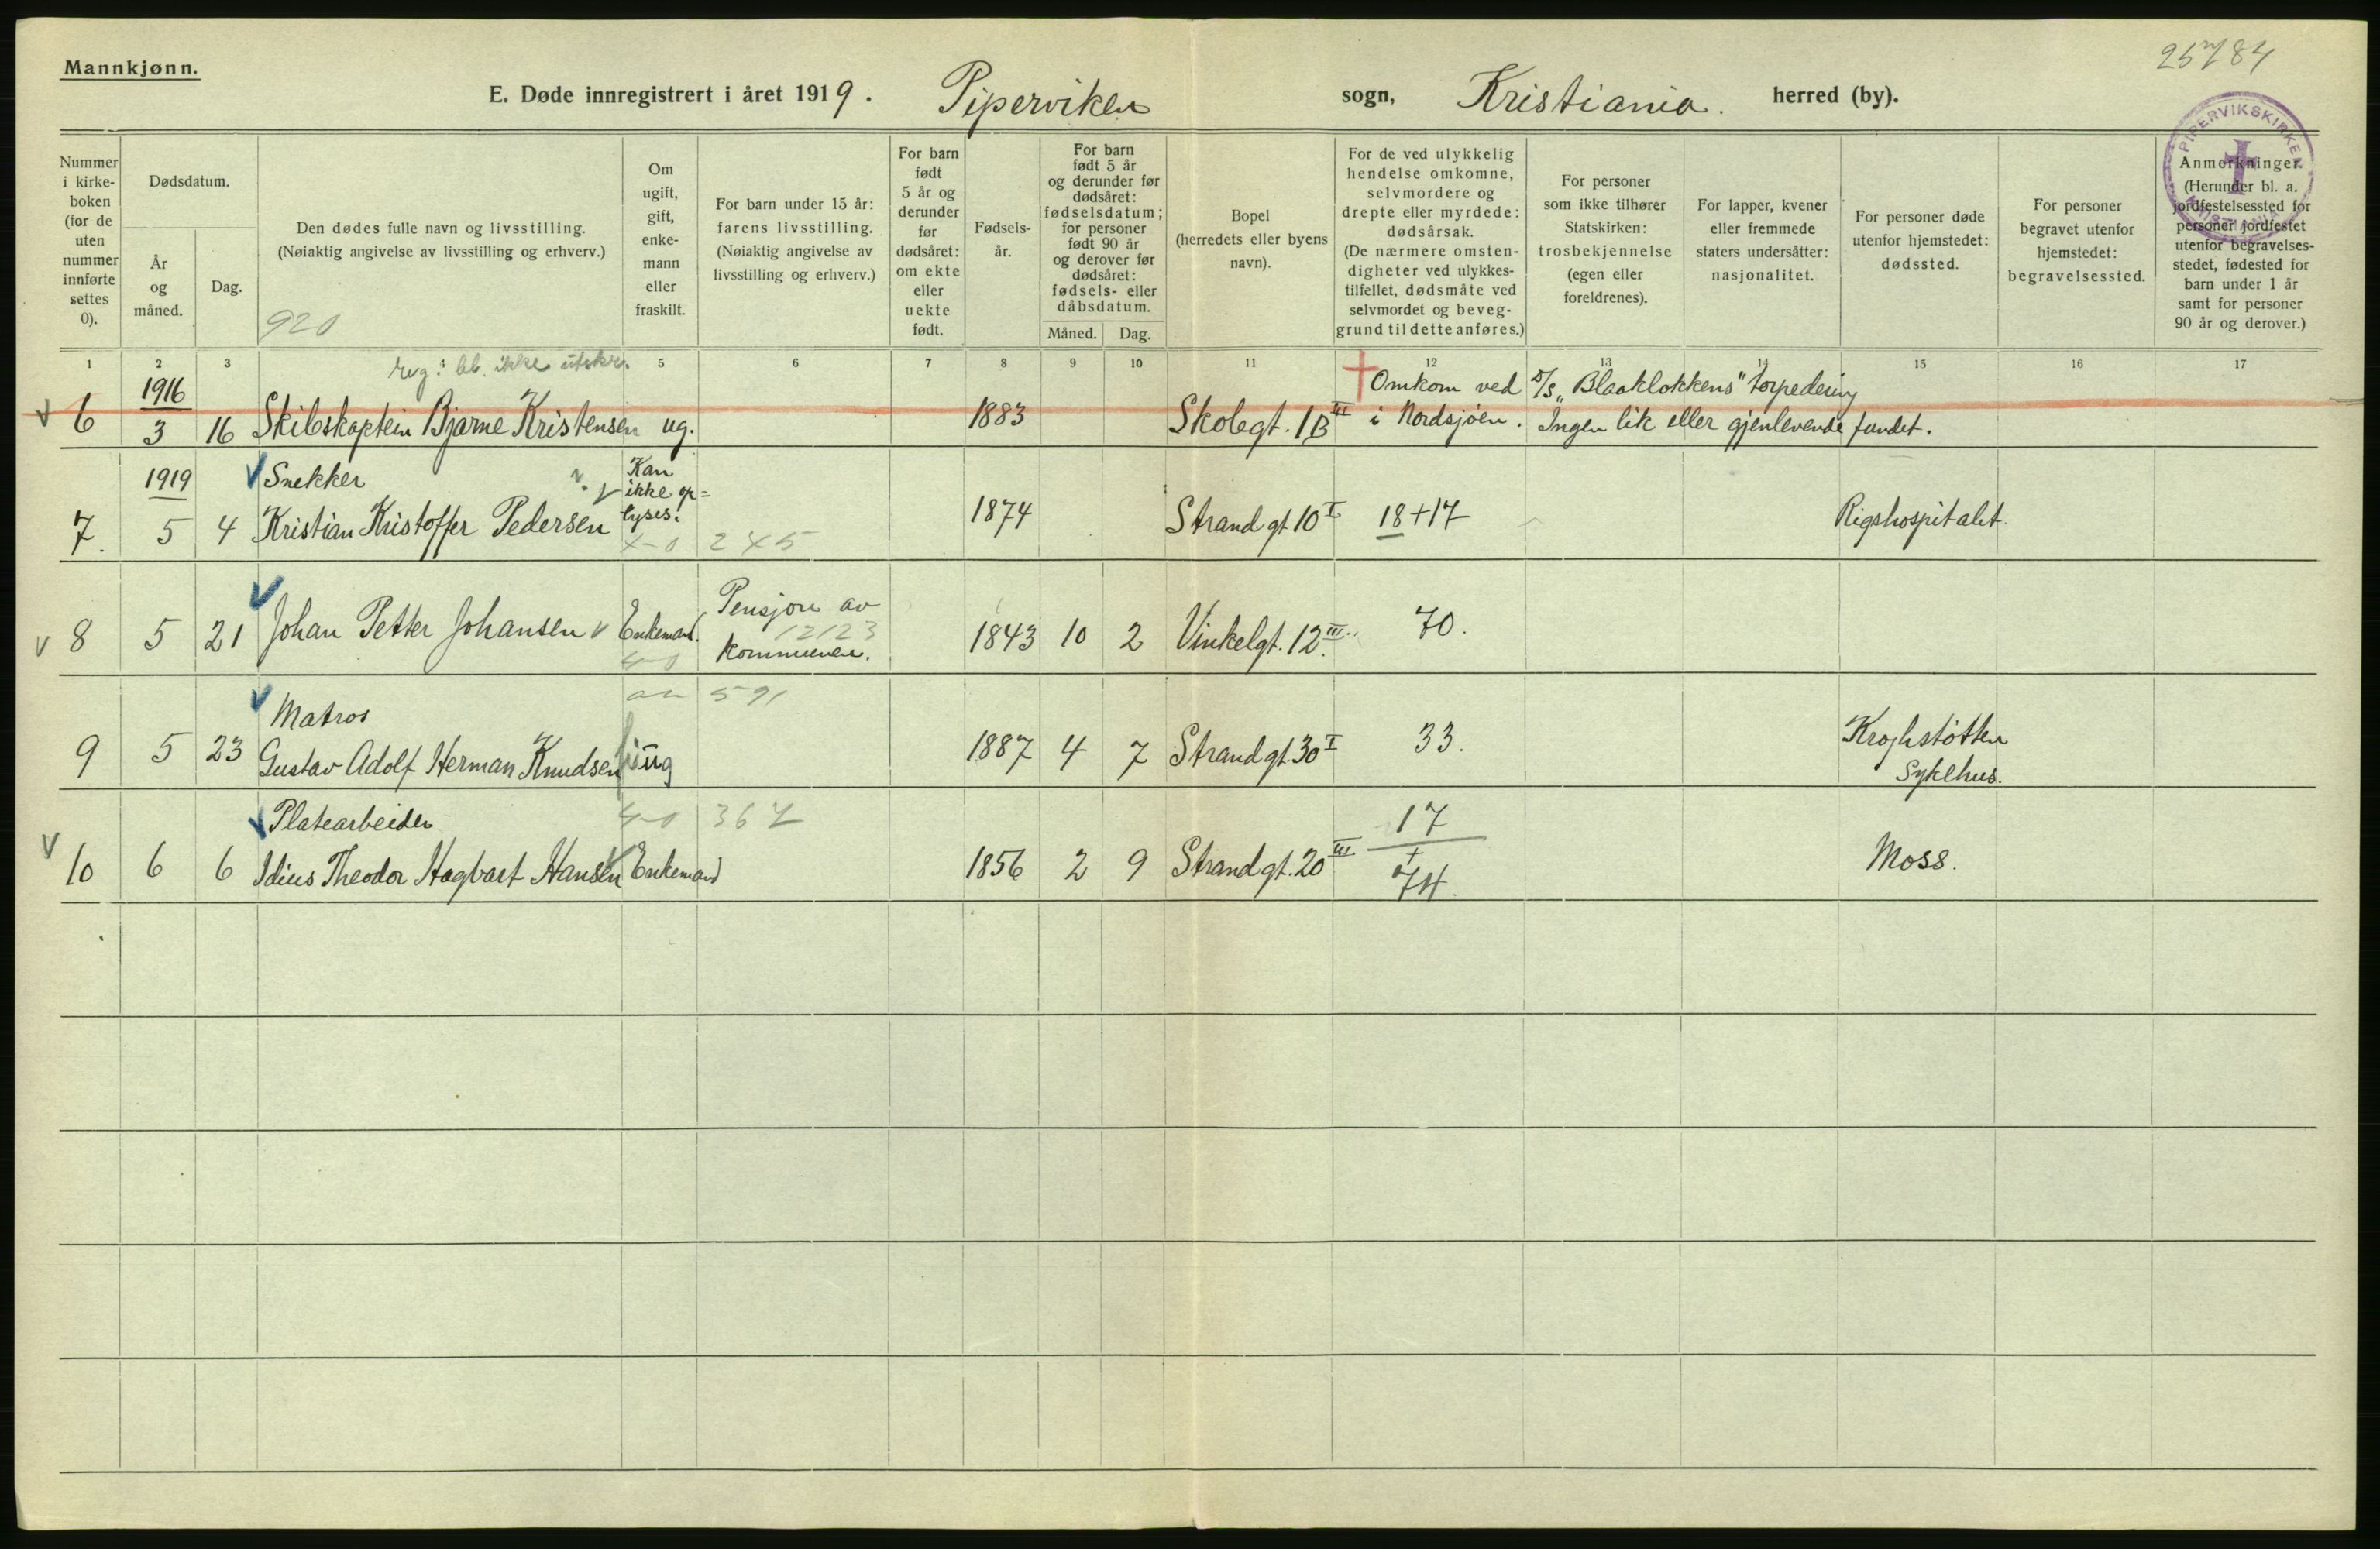 25784
Mannkjønn.
E. Døde innregistrert i året 1919. Piperviken sogn, Kristiania. herred (by).
PIPERVIKSKIRKEN
KRISTIANIA
Nummer i kirke-boken (for de uten nummer innførte settes 0).
Dødsdatum.
År og måned.
Dag.
Den dødes fulle navn og livsstilling.
(Nøiaktig angivelse av livsstilling og erhverv.)
920
Om ugift, gift, enke-mann eller fraskilt.
For barn under 15 år: farens livsstilling.
(Nøiaktig angivelse av livsstilling og erhverv.)
For barn født 5 år og derunder før dødsåret: om ekte eller uekte født.
Fødsels-år.
For barn født 5 år og derunder før dødsåret: fødselsdatum; for personer født 90 år og derover før dødsåret: fødsels- eller dåbsdatum.
Måned. Dag.
Bopel (herredets eller byens navn).
For de ved ulykkelig hendelse omkomne, selvmordere og drepte eller myrdede: dødsårsak.
(De nærmere omsten-digheter ved ulykkes-tilfellet, dødsmåte ved selvmordet og beveg-grund til dette anføres.)
For personer som ikke tilhører Statskirken: trosbekjennelse (egen eller foreldrenes).
For lapper, kvener eller fremmede staters undersåtter: nasjonalitet.
For personer døde utenfor hjemstedet: dødssted.
For personer begravet utenfor hjemstedet: begravelsessted.
Anmerkninger.
(Herunder bl. a. jordfestelsessted for personer jordfestet utenfor begravelses-stedet, fødested for barn under 1 år samt for personer 90 år og derover.)
1 2 3 5 6 7 8 9 10 11 12 13 14 15 16 17
reg: bl. ikke utskr.
1916
6 3 16 Skibskaptein Bjarne Kristensen ug. 1883 Skolegt. 1B III
Omkom ved D/S „Blaaklokkens" torpedering
i Nordsjøen. Ingen lik eller gjenlevende fundet.
1919 Snekker Kan ikke op=lyses!
7. 5 4 Kristian Kristoffer Pedersen 1874 Strandgt 10 I 18+17 Rigshospitalet.
4-0 245
8 5 21 Johan Petter Johansen Enkemand. Pensjon av kommunen. 1843 10 2 Vinkelgt. 12 III. 70.
12123
4-0
591
Matros
9 5 23 Gustav Adolf Herman Knudsen ug 1887 4 7 Strandgt. 30 I 33. Krohstøtten Sykehus.
4-0 367
Platearbeider
10 6 6 Idius Theodor Hagbart Hansen Enkemand 1856 2 9 Strandgt. 20 III 17 + 74. Moss.